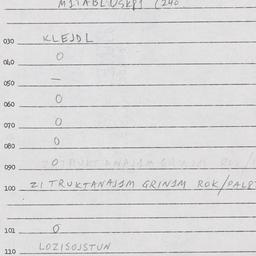 MITABLUSKPI (240
030 KLEJDL
040 O
050 —
060 O
070 O
080 O
090 O
100 ZI TRUKTANAJIM GRINIM ROK/PALP
101 O
110 LOZISOJSTUN